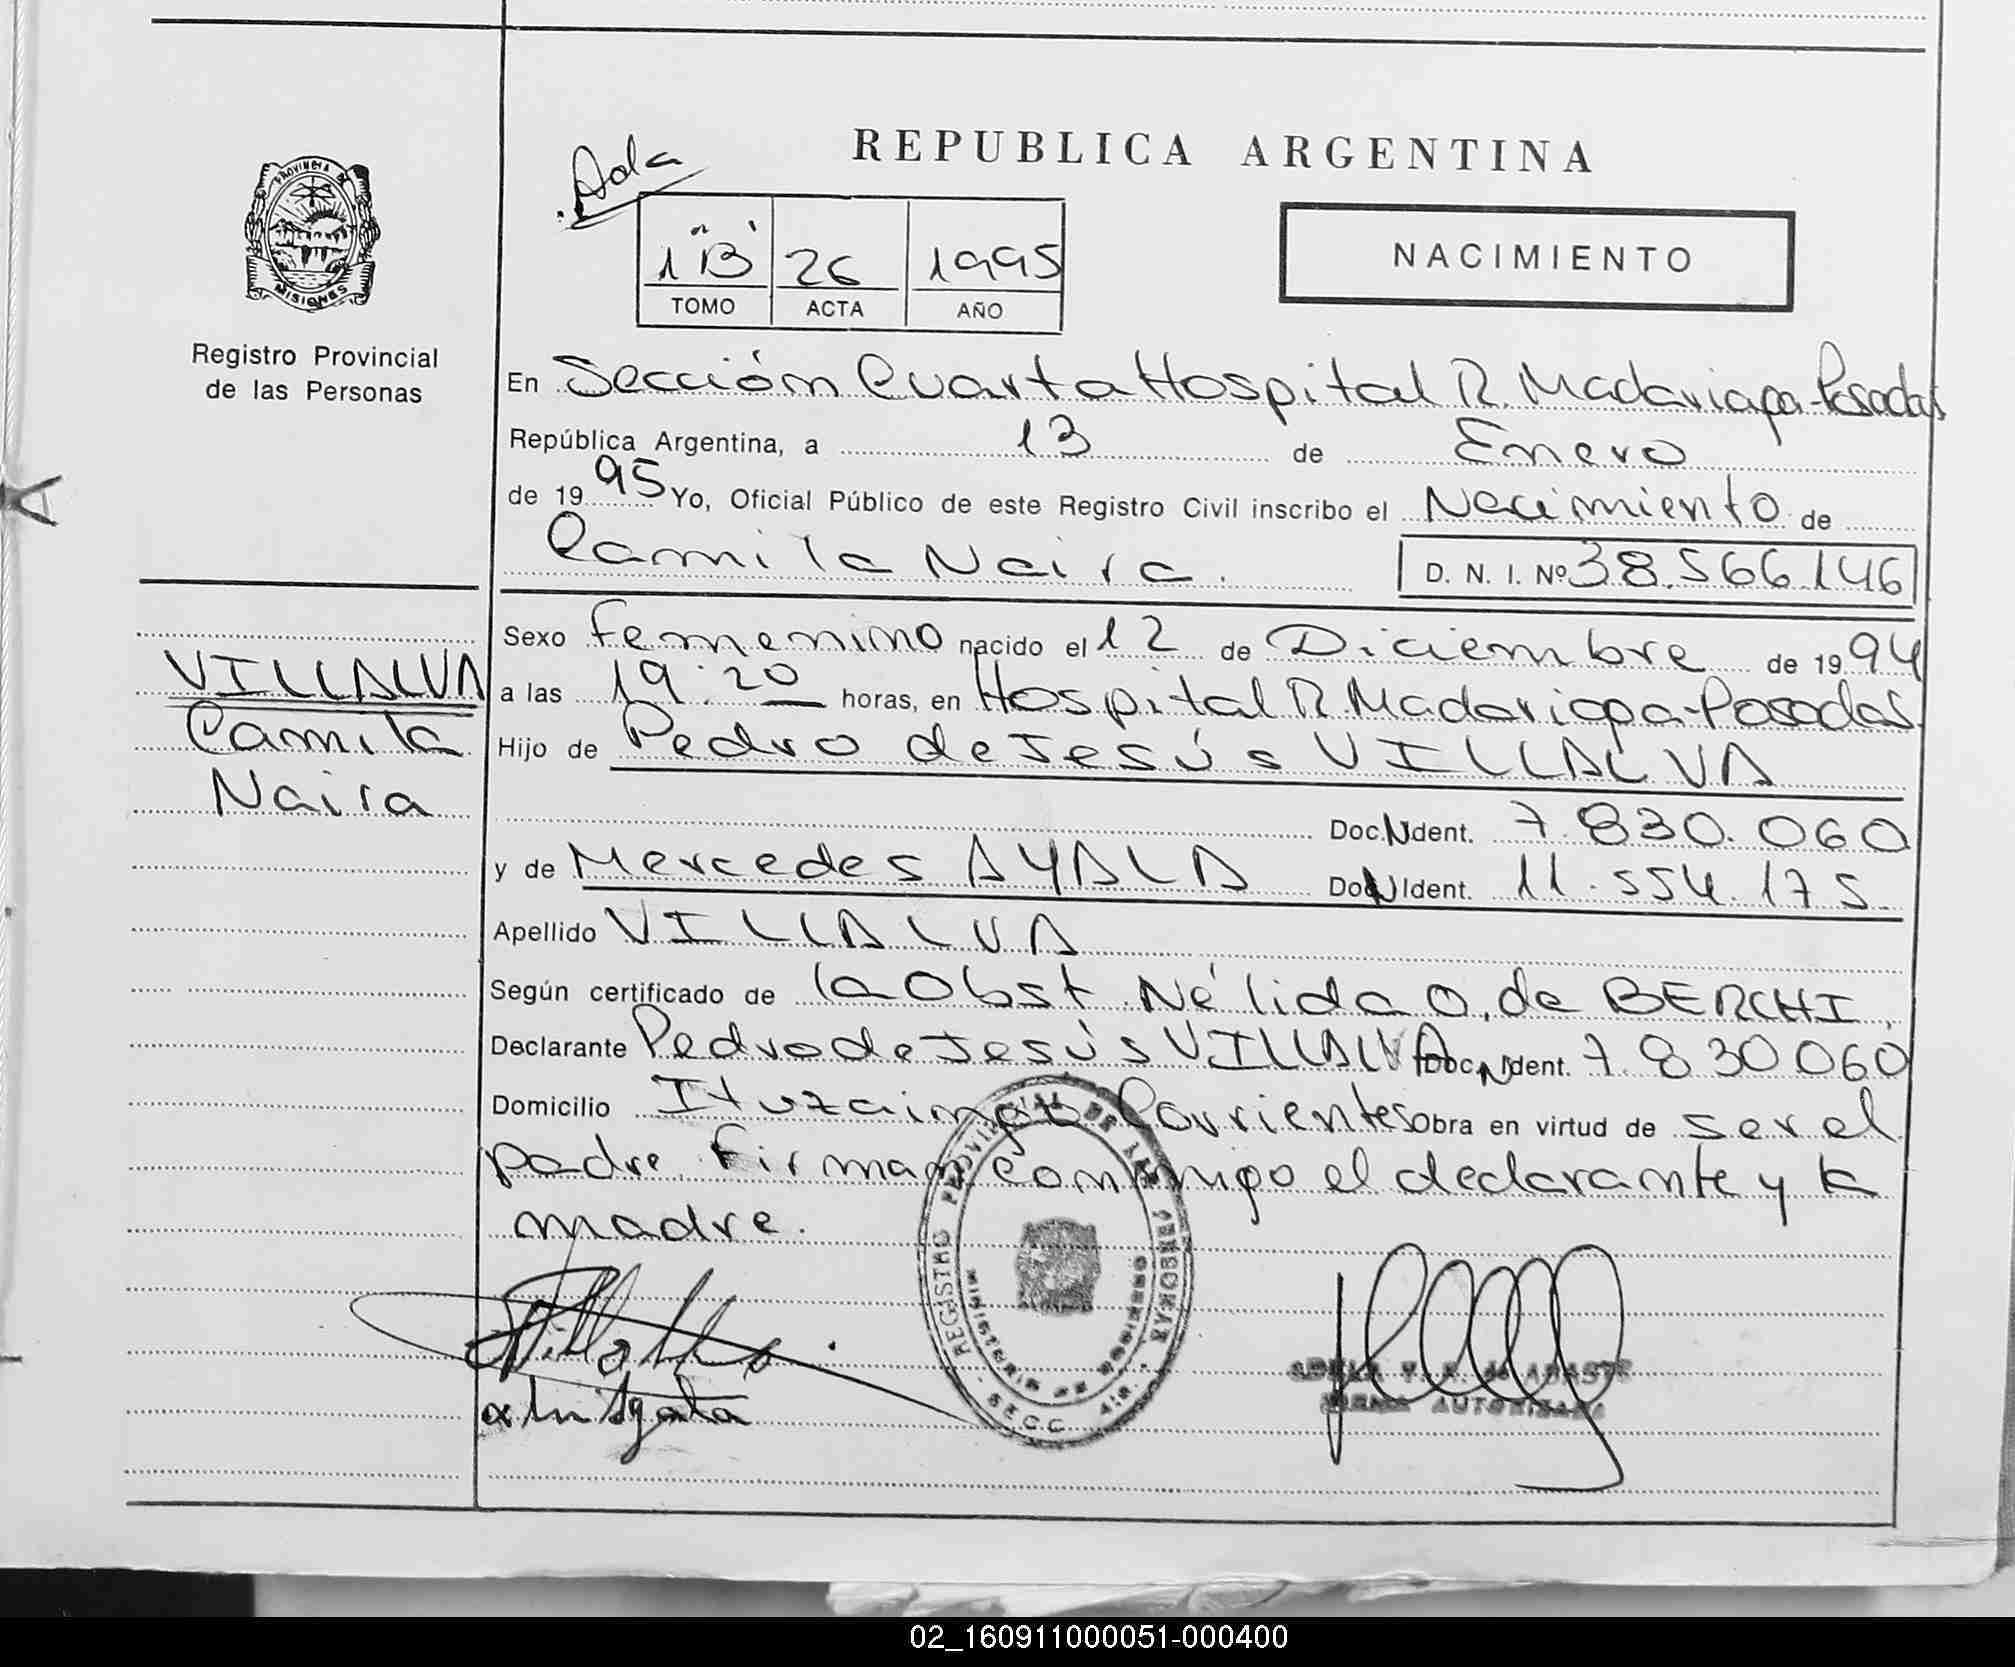 REPUBLICA ARGENTINA
Ada
1 "B" 26 1995
TOMO ACTA AÑO
NACIMIENTO
PROVINCIA DE
MISIONES
Registro Provincial
de las Personas
En Sección Cuarta Hospital R. Madariaga-Posadas
República Argentina, a 13 de Enero
de 1995 Yo, Oficial Público de este Registro Civil inscribo el Nacimiento de
Camila Naira. D. N. I. Nº 38.566.146
Sexo femenino nacido el 12 de Diciembre de 1994
a las 19:20 horas, en Hospital R. Madariaga-Posadas.
Hijo de Pedro de Jesús VILLALVA
Doc. Ident. 7.830.060
y de Mercedes AYALA Doc. Ident. 11.554.175
Apellido VILLALVA
Según certificado de la Obst Nélida O. de BERCHI.
Declarante Pedro de Jesús VILLALVA Doc. Ident. 7.830060
Domicilio Ituzaingo Corrientes obra en virtud de ser el
padre. Firman conmigo el declarante y la
madre.
VILLALVA
Camila
Naira
REGISTRO PROVINCIAL DE LAS PERSONAS
MINISTERIO DE GOBIERNO
SECC. 4ta.
FIRMA AUTORIZADA
02_160911000051-000400